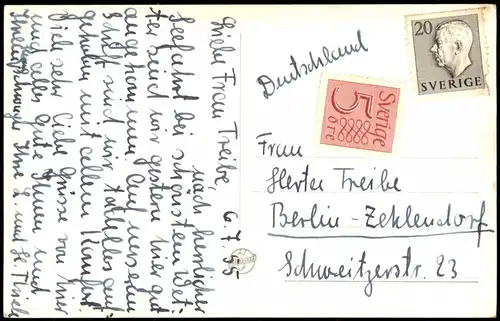 Liebe Frau Treibe, 6.7.55
nach herrlicher
Seefahrt bei schönstem Wet-
ter sind wir gestern hier gut
angekommen. Auf unserem
Schiff sind wir tadellos auf-
gehoben mit allem Komfort.
Viele sehr liebe Grüsse von hier
und alles Gute Ihnen und
Ihre L. und H.
Deutschland
20
SVERIGE
Sverige
5
öre
Frau
Herta Treibe
Berlin-Zehlendorf
Schweitzerstr. 23